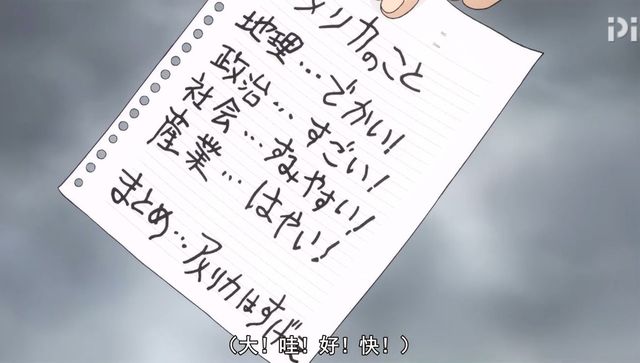 メリカのこと
地理…でかい!
政治…すごい!
社会…すみやすい!
産業…はやい!
まとめ…アメリカはすげぇ
(大!哇!好!快!)